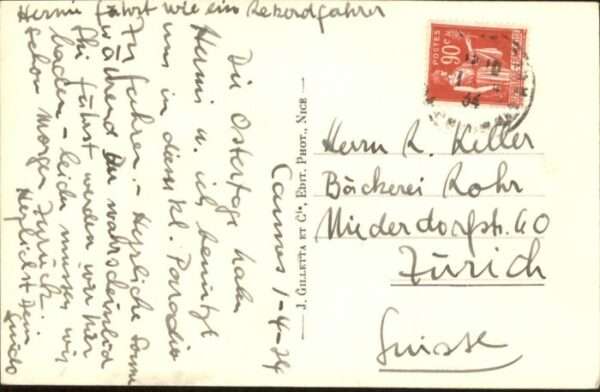 Hermi fährt wie ein Rekordfahrer
Cannes 1-4-34
Die Ostertage haben
Hermi u. ich benützt
uns in dieses kl. Paradies
zu fahren. - Herrliche Sonne
während Du wahrscheinlich
Ski fährst werden wir hier
baden - leider müssen wir
schon morgen zurück.
Herzlichst Dein
Guido
J. GILLETTA ET Cie, EDIT. PHOT., NICE
POSTES
90c
34
Herrn R. Keller
Bäckerei Rohr
Niederdorfstr. 60
Zürich
Suisse